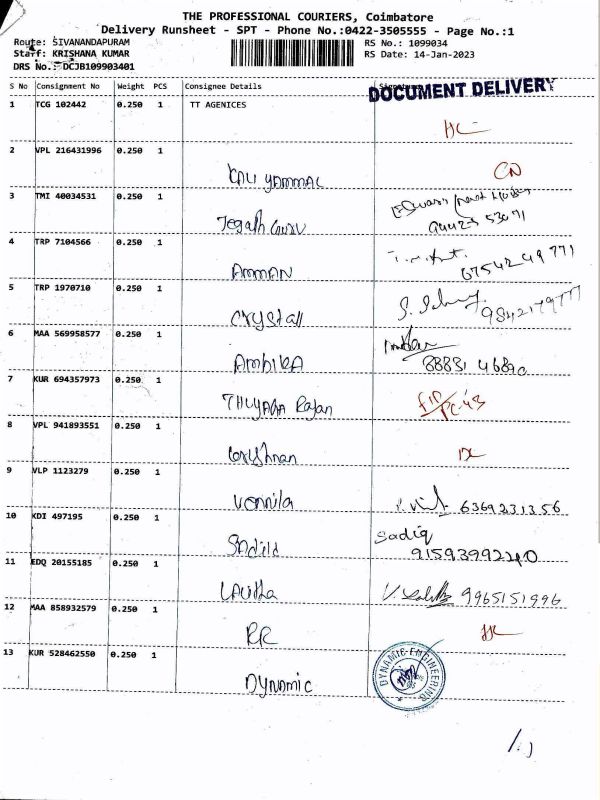 THE PROFESSIONAL COURIERS, Coimbatore
Delivery Runsheet - SPT - Phone No.:0422-3505555 - Page No.:1
Route: SIVANANDAPURAM RS No.: 1099034
Staff: KRISHANA KUMAR RS Date: 14-Jan-2023
DRS No.: DCJB109903401
S No Consignment No Weight PCS Consignee Details
DOCUMENT DELIVERY
1 TCG 102442 0.250 1 TT AGENICES
2 VPL 216431996 0.250 1
3 TMI 40034531 0.250 1
4 TRP 7104566 0.250 1
AMMAN 67542 49 771
5 TRP 1970710 0.250 1
Crystall
6 MAA 569958577 0.250 1
AmbikA 88831 46890
7 KUR 694357973 0.250 1
THIYAGA Rajan
8 VPL 941893551 0.250 1
9 VLP 1123279 0.250 1
Vennila 6369231356
10 KDI 497195 0.250 1
Sadiq
9159399240
11 EDQ 20155185 0.250 1
Lalitha 9965151996
12 MAA 858932579 0.250 1
RR
13 KUR 528462550 0.250 1
Dynamic
DYNAMIC ENGINEERING